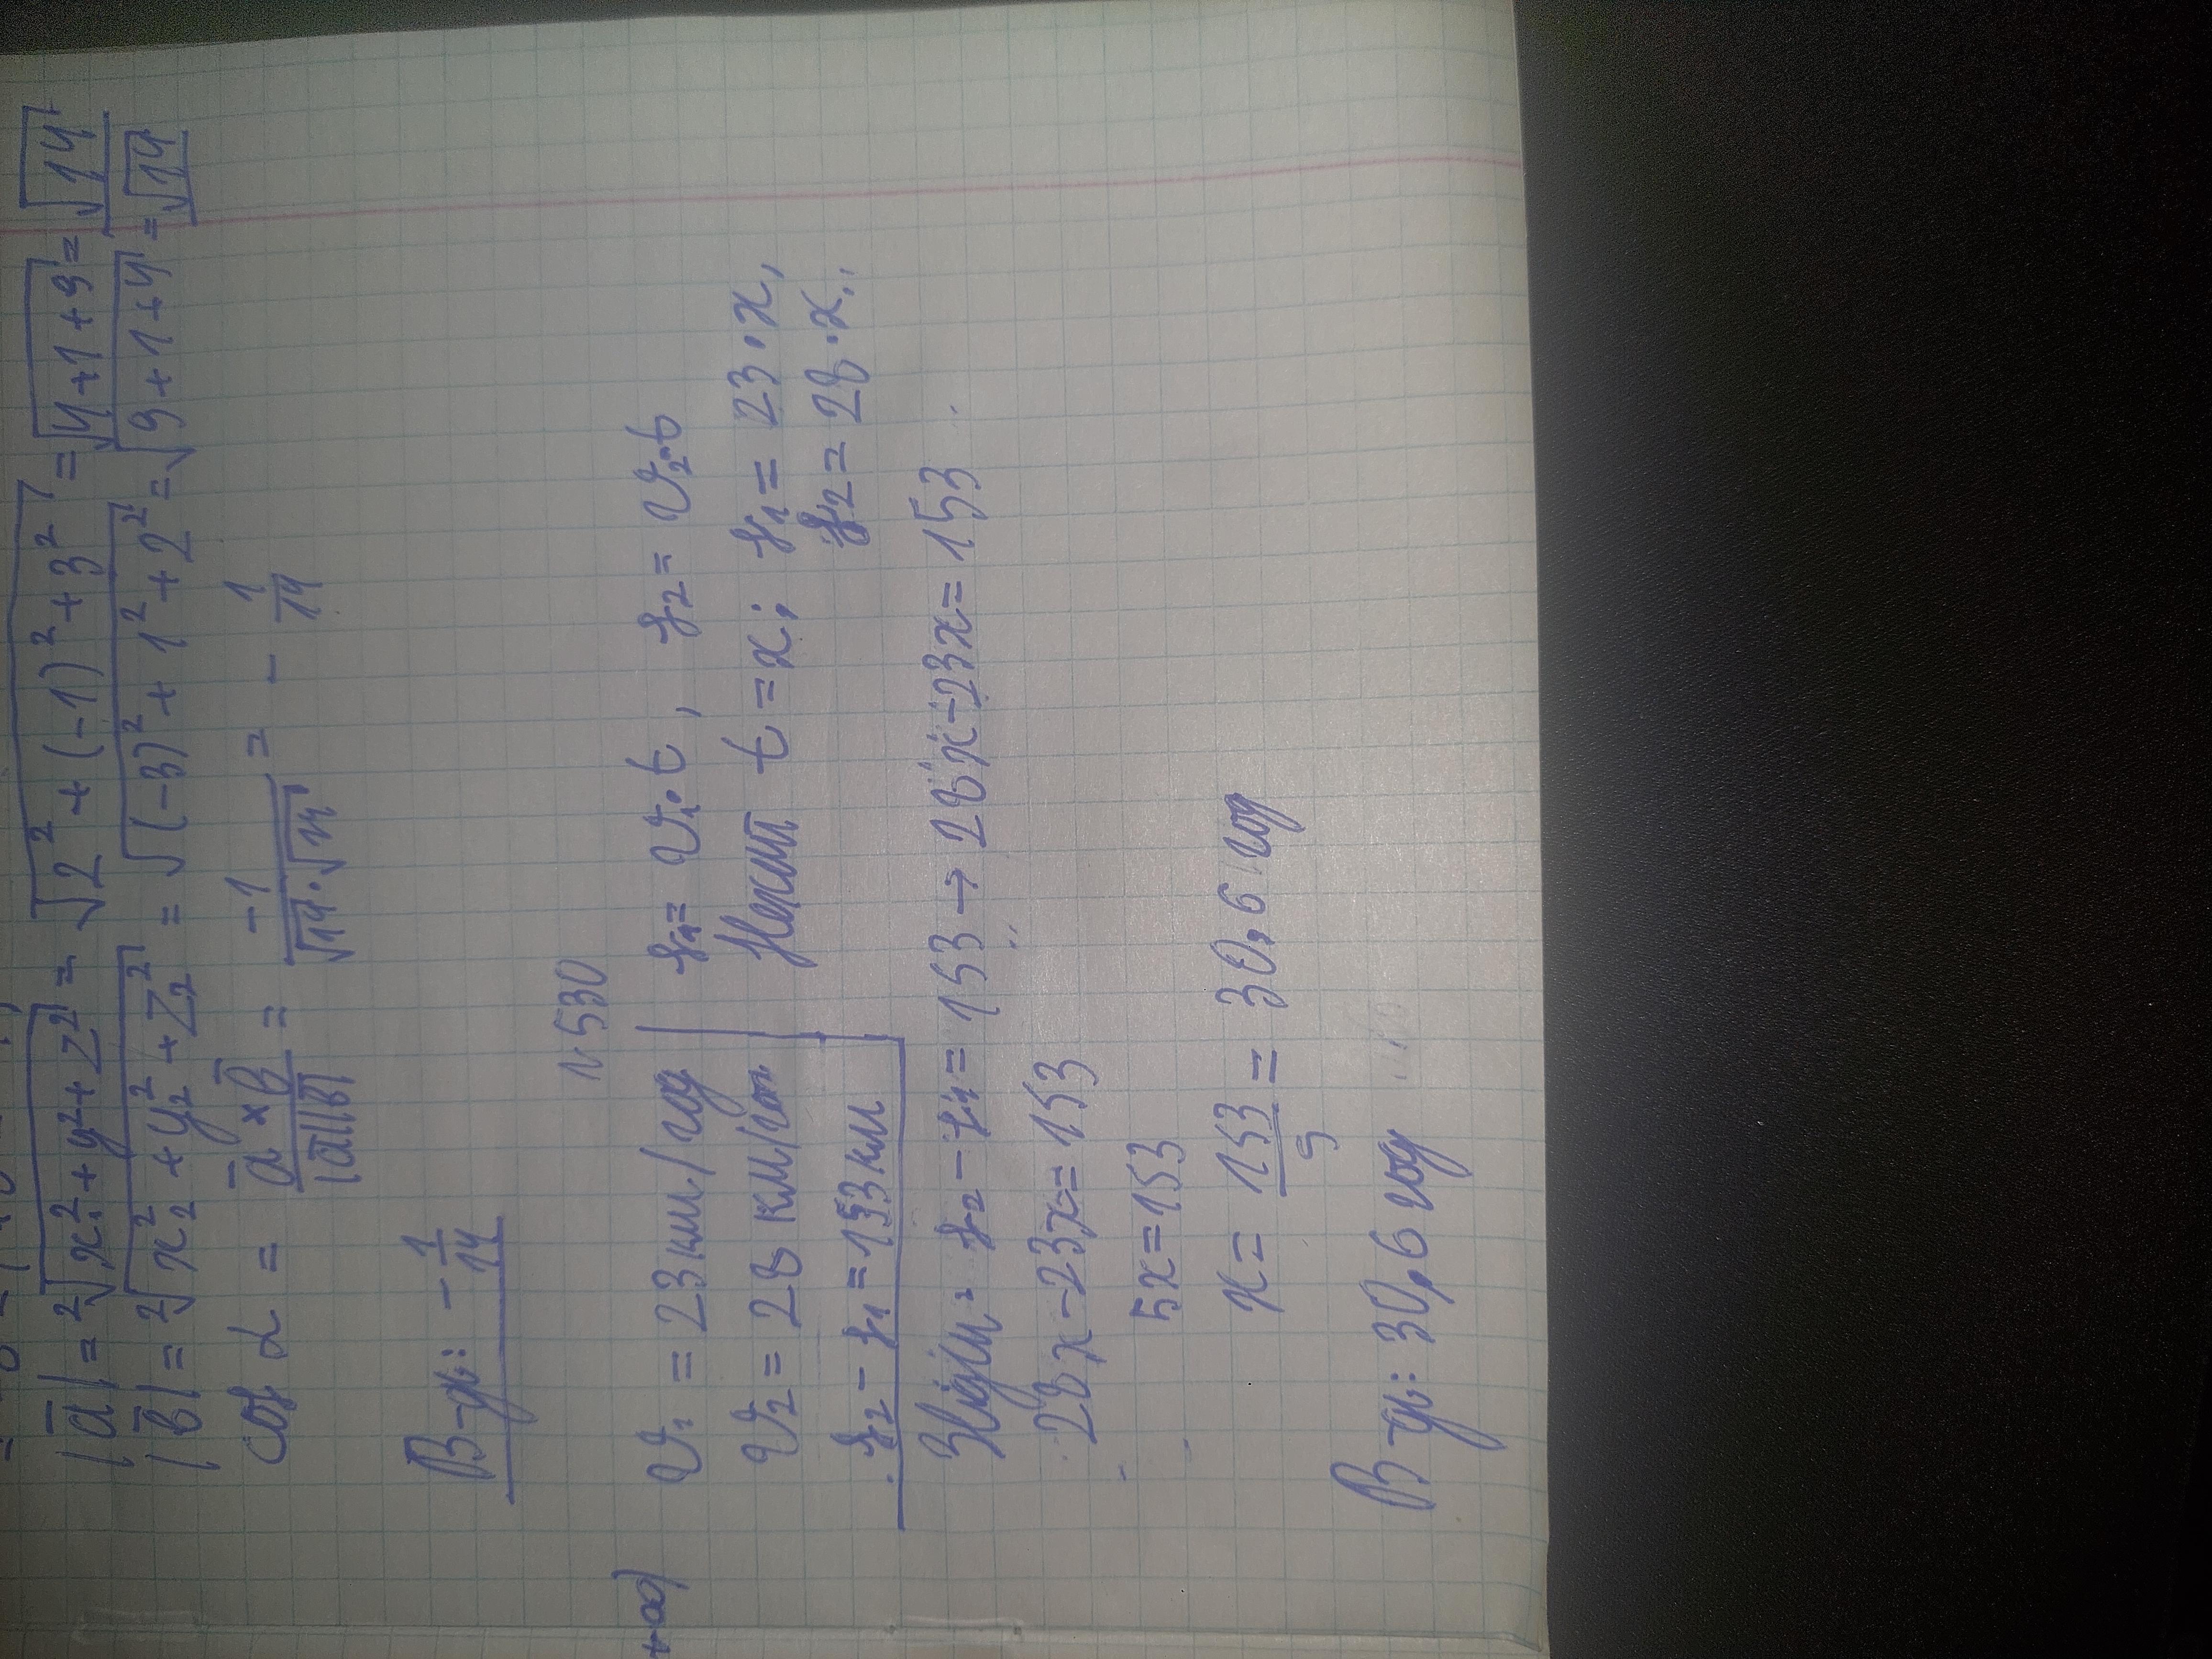 |a̅| = ²√x₁² + y² + z² = √2² + (-1)² + 3² = √4 + 1 + 9 = √14
|b̅| = ²√x₂² + y₂² + z₂² = √(-3)² + 1² + 2² = √9 + 1 + 4 = √14
cos α = a̅ × b̅ / |a̅||b̅| = -1 / √14 · √14 = - 1/14
В-дь: - 1/14
N 530
+∞)
V₁ = 23 км/год
V₂ = 28 км/год
S₂ - S₁ = 153 км
S₁ = V₁ · t , S₂ = V₂ · t
Нехай t = x; S₁ = 23 · x,
S₂ = 28 · x.
S₂ - S₁ = 153 → 28x - 23x = 153
28x - 23x = 153
5x = 153
x = 153/5 = 30,6 год
В-дь: 30,6 год